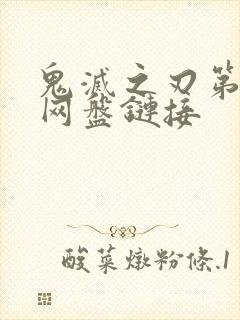 鬼滅之刃第
网盤鏈接
酸菜燉粉條.1